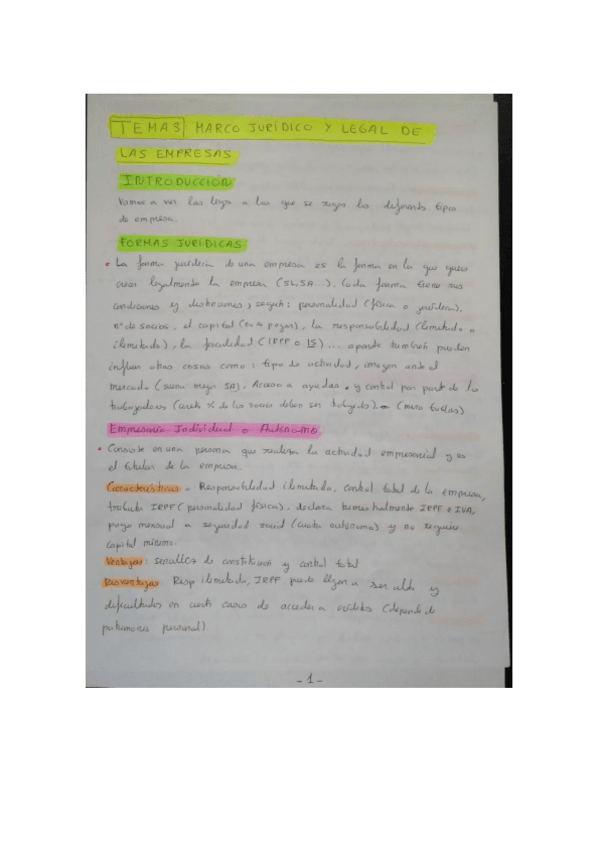 TEMA 3: MARCO JURÍDICO Y LEGAL DE
LAS EMPRESAS
INTRODUCCIÓN
Vamos a ver las leyes a las que se rigen los diferentes tipos
de empresa.
FORMAS JURÍDICAS
• La forma jurídica de una empresa es la forma en la que quiero
crear legalmente la empresa (SL, SA...). Cada forma tiene sus
condiciones y distinciones, según: personalidad (física o jurídica),
nº de socios, el capital (en a pagar), la responsabilidad (limitada o
ilimitada), la fiscalidad (IRPF o IS)... aparte también pueden
influir otras cosas como: tipo de actividad, imagen ante el
mercado (suena mejor SA), Acceso a ayudas y control por parte de los
trabajadores (cierto % de los socios deben ser trabajad.) (mirar tablas)
Empresario Individual o Autónomo:
• Consiste en una persona que realiza la actividad empresarial y es
el titular de la empresa.
Características: Responsabilidad ilimitada, control total de la empresa,
tributa IRPF (personalidad física), declara trimestralmente IRPF e IVA,
pago mensual a seguridad social (cuota autónomo) y no requiere
capital mínimo.
Ventajas: sencillez de constitución y control total
Desventajas: Resp ilimitada, IRPF puede llegar a ser alto y
dificultades en cierto casos de acceder a créditos (depende de
patrimonio personal)
- 1 -